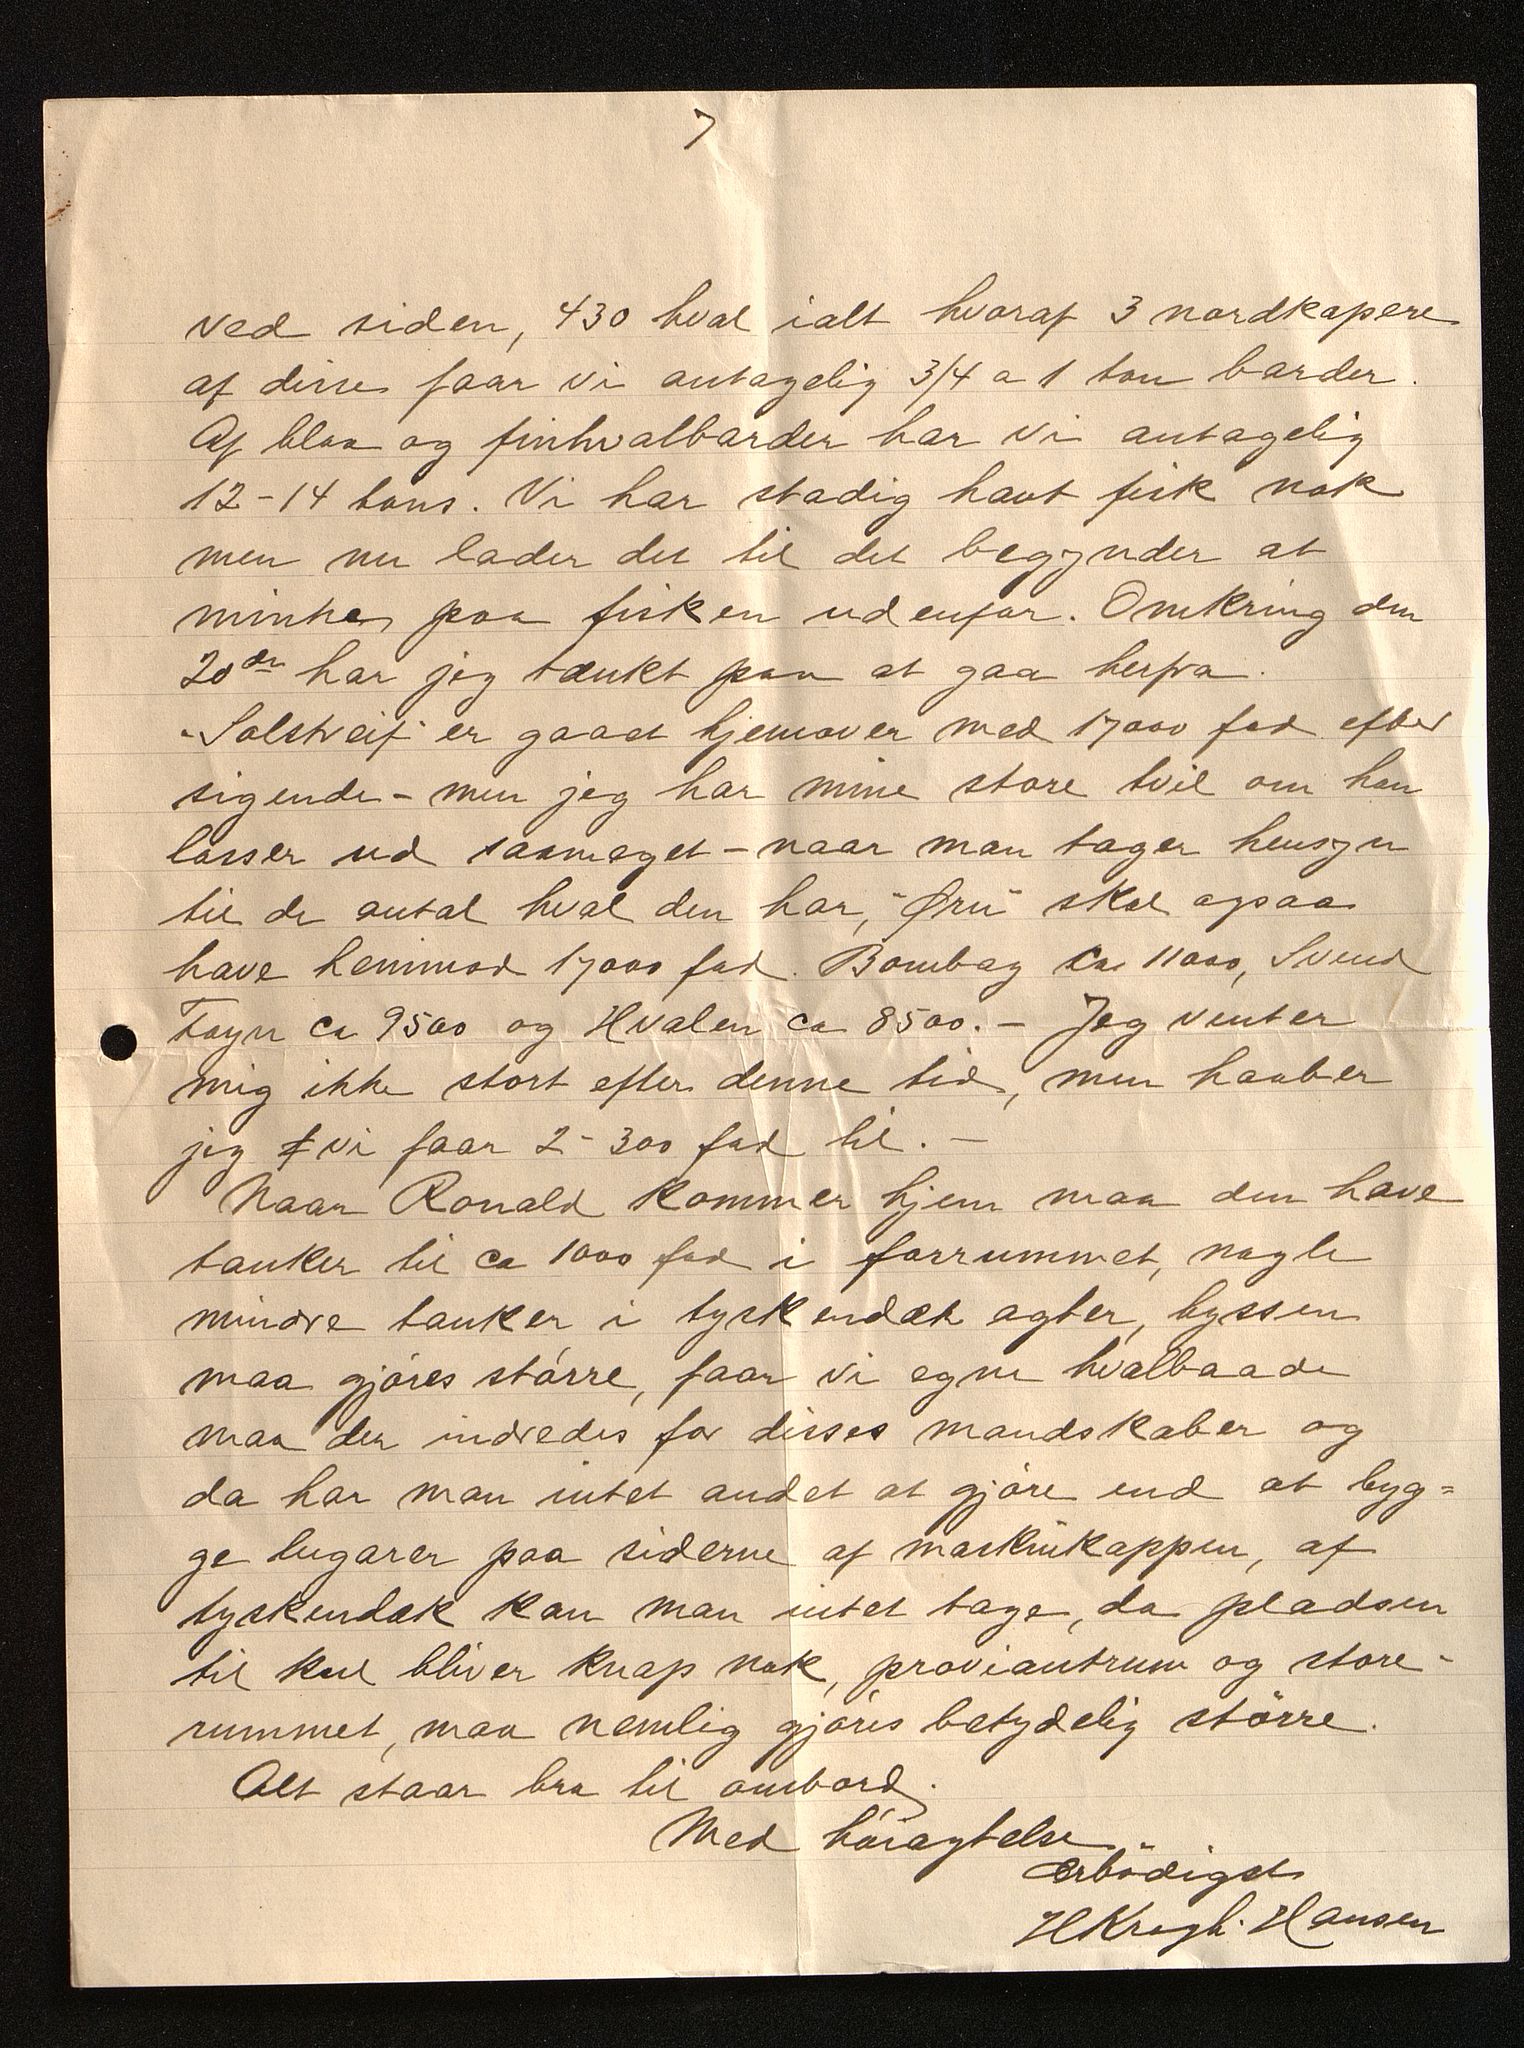 7
ved siden, 430 hval ialt hvoraf 3 nordkapere
af disse faar vi antagelig 3/4 a 1 ton barder.
Af blaa og finhvalbarder har vi antagelig
12-14 tons. Vi har stadig havt fisk nok
men nu lader det til det begynder at
minke paa fisken udenfor. Omkring den
20de har jeg tænkt paa at gaa herfra.
"Solstreif" er gaaet hjemover med 17000 fad efter
sigende - men jeg har mine store tvil om han
losser ud saameget - naar man tager hensyn
til de antal hval den har, "Ørn" skal ogsaa
have henimod 17000 fad. Bombay ca 11000, Svend
Foyn ca 9500 og Hvalen ca 8500. - Jeg venter
mig ikke stort efter denne tid, men haaber
jeg vi faar 2-300 fad til. -
Naar Ronald kommer hjem maa den have
tanker til ca 1000 fad i forrummet, nogle
mindre tanker i tyskendæk agter, byssen
maa gjøres større, faar vi egne hvalbaade
maa der indredes for disses mandskaber og
da har man intet andet at gjøre end at byg=
ge lugarer paa siderne af maskinkappen, af
tyskendæk kan man intet tage, da pladsen
til kul bliver knap nok, proviantrum og store-
rummet, maa nemlig gjøres betydelig større.
Alt staar bra til ombord.
Med høiagtelse
ærbødigst
H Krogh-Hansen